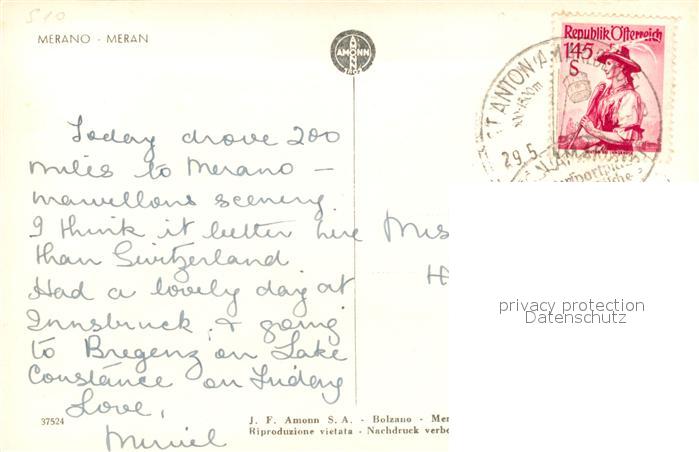 510
MERANO - MERAN
AMONN
Republik Österreich
1.45
S
ST ANTON A.
29.5.
Today drove 200
miles to Merano -
marvellous scenery.
I think it better here
than Switzerland
Had a lovely day at
Innsbruck, & going
to Bregenz on Lake
Constance on Friday
Love,
Muriel
Miss
H
privacy protection
Datenschutz
37524
J. F. Amonn S. A. - Bolzano - Mer
Riproduzione vietata - Nachdruck verbo